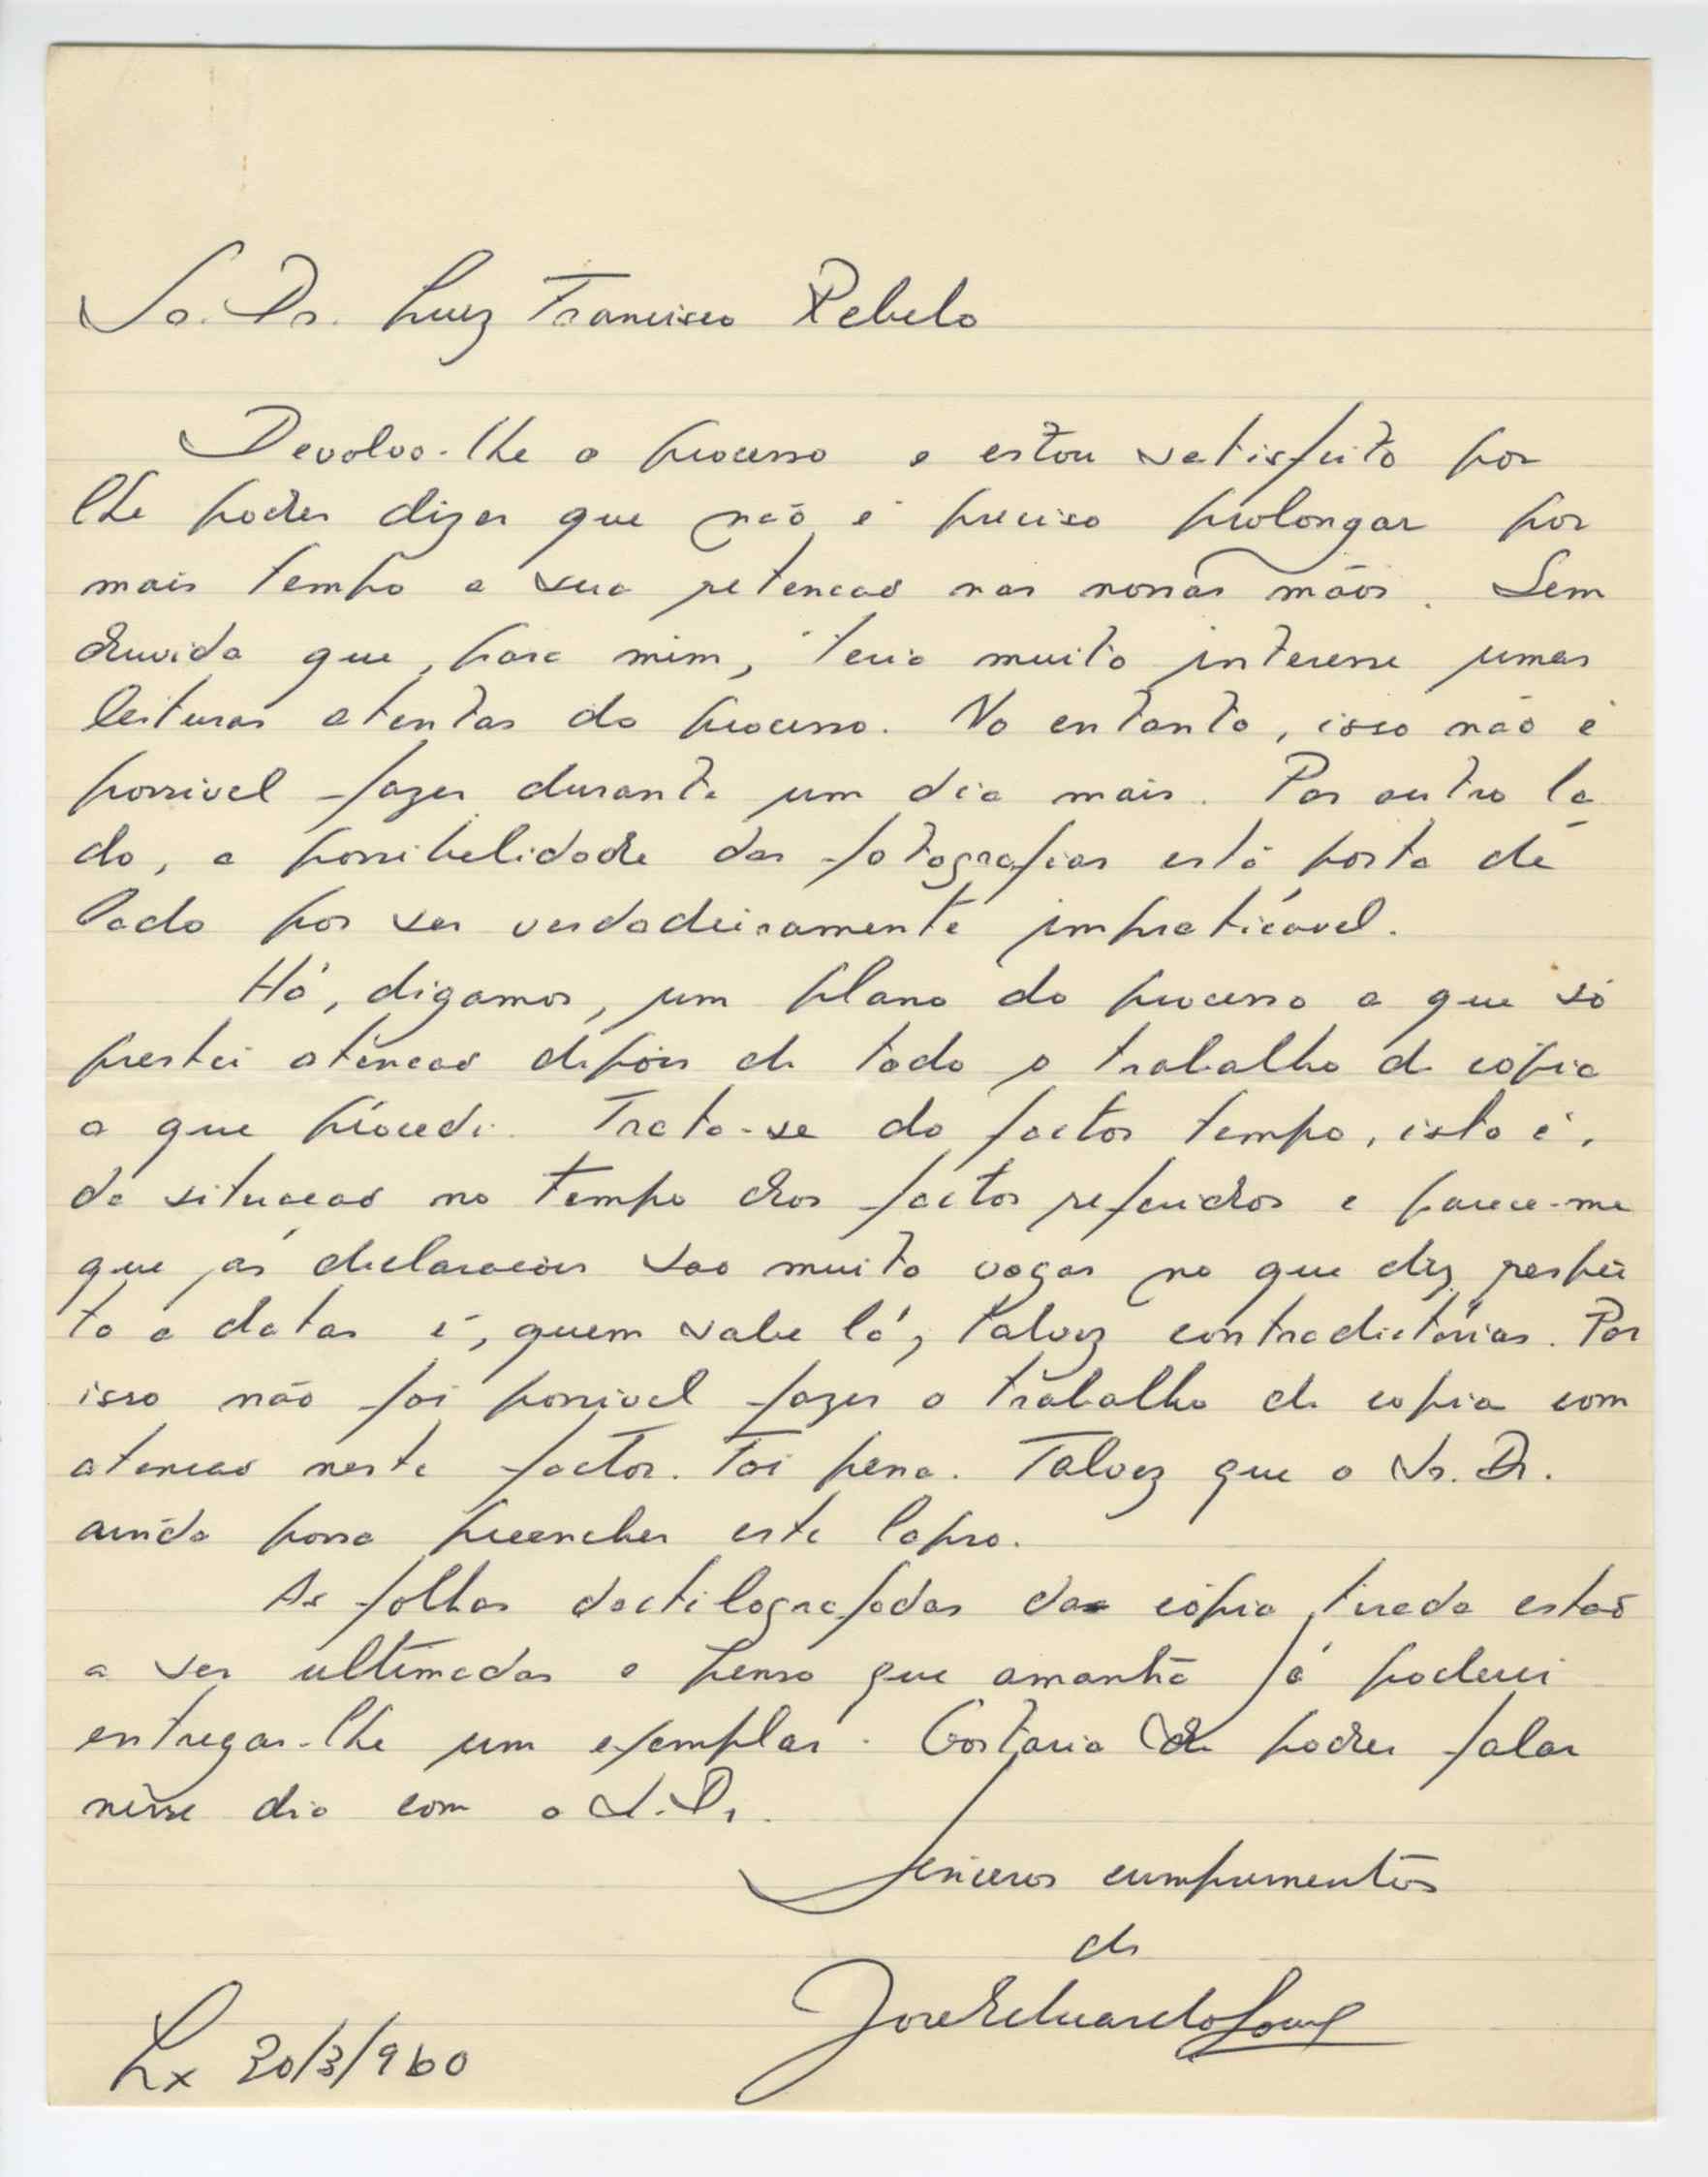 Sr. Dr. Luiz Francisco Rebelo
Devolvo-lhe o processo e estou satisfeito por
lhe poder dizer que não é preciso prolongar por
mais tempo a sua retencao nas nossas mãos. Sem
duvida que, para mim, teria muito interesse umas
leituras atentas do processo. No entanto, isso não é
possivel fazer durante um dia mais. Por outro la
do, a possibelidade das fotografias está posta de
lado por ser verdadeiramente impraticável.
Há, digamos, um plano do processo a que só
prestei atencao depois de todo o trabalho de cópia
a que procedi. Trata-se do factor tempo, isto é,
da situacao no tempo dos factos referidos e parece-me
que as declaracões sao muito vagas no que diz respei
to a datas e, quem sabe lá, talvez contradictórias. Por
isso não foi possivel fazer o trabalho de copia com
atencao neste factor. Foi pena. Talvez que o Sr. Dr.
ainda possa preencher este lapso.
As folhas dactilografadas da cópia tirada estaõ
a ser ultimadas e penso que amanhã já poderei
entregar-lhe um exemplar. Gostaria de poder falar
nêsse dia com o S. Dr.
Sinceros cumprimentos
de
José Eduardo
Lx 20/3/960